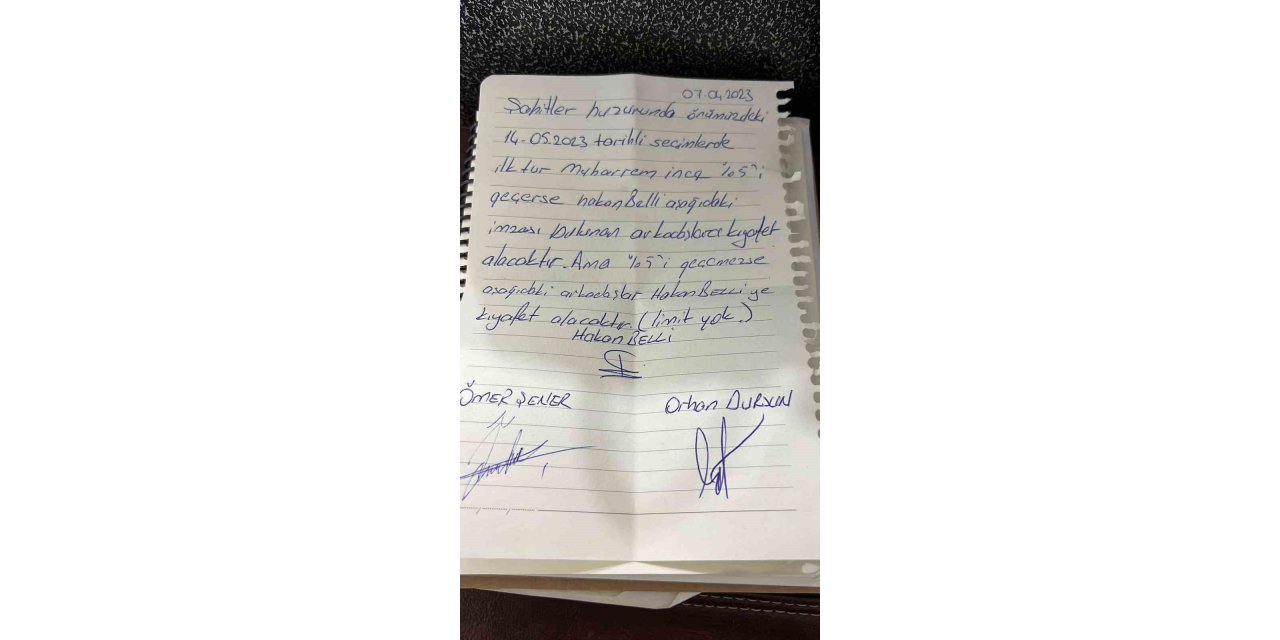 07.04.2023
Şahitler huzurunda önümüzdeki
14-05.2023 tarihli seçimlerde
ilk tur Muharrem ince %5'i
geçerse hakan Belli aşağıdaki
imzası bulunan arkadaşlara kıyafet
alacaktır. Ama %5'i geçemezse
aşağıdaki arkadaşlar Hakan BELLi ye
kıyafet alacaktır. (limit yok.)
Hakan BELLi
ÖMER ŞENER
Orhan DURSUN